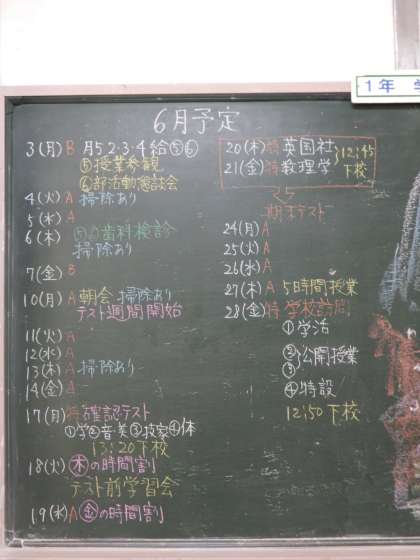 1年 学
6月予定
3(月) B 月5 2・3・4 給 ⑤⑥
⑤授業参観
⑥部活動懇談会
4(火) A 掃除あり
5(水) A
6(木) ⑤⑥歯科検診
掃除あり
7(金) B
10(月) A 朝会 掃除あり
テスト週間開始
11(火) A
12(水) A
13(木) A 掃除あり
14(金) A
17(月) 特 確認テスト
①学②音・美③技家④体
13:20下校
18(火) 木の時間割
テスト前学習会
19(水) A 金の時間割
20(木) 特 英国社
21(金) 特 数理学
12:45
下校
期末テスト
24(月) A
25(火) A
26(水) A
27(木) A 5時間授業
28(金) 特 学校訪問
①学活
②
③
公開授業
④特設
12:50下校